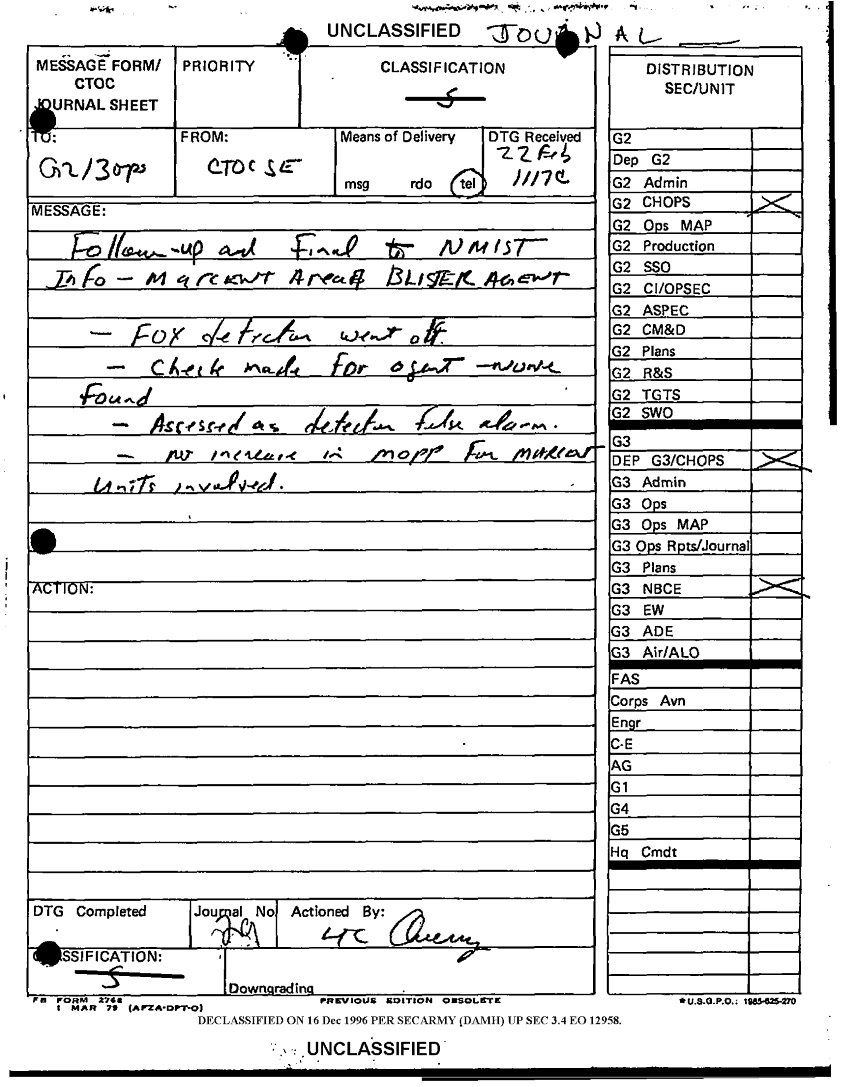 UNCLASSIFIED JOURNAL
MESSAGE FORM/
CTOC
JOURNAL SHEET
PRIORITY
CLASSIFICATION
S
TO:
G2/3ops
FROM:
CTOC SE
Means of Delivery
msg rdo tel
DTG Received
22 Feb
1117C
MESSAGE:
Follow-up and final to NMIST
Info - MARCENT Area BLISTER AGENT
- FOX detector went off.
- Check made for agent - none
found
- Assessed as detector false alarm.
- no increase in MOPP for MARCENT
Units involved.
ACTION:
DTG Completed
Journal No
29
Actioned By:
LTC
CLASSIFICATION:
S
Downgrading
FB FORM 2768
1 MAR 79 (AFZA-DPT-O)
PREVIOUS EDITION OBSOLETE
DISTRIBUTION
SEC/UNIT
G2
Dep G2
G2 Admin
G2 CHOPS X
G2 Ops MAP
G2 Production
G2 SSO
G2 CI/OPSEC
G2 ASPEC
G2 CM&D
G2 Plans
G2 R&S
G2 TGTS
G2 SWO
G3
DEP G3/CHOPS X
G3 Admin
G3 Ops
G3 Ops MAP
G3 Ops Rpts/Journal
G3 Plans
G3 NBCE X
G3 EW
G3 ADE
G3 Air/ALO
FAS
Corps Avn
Engr
C-E
AG
G1
G4
G5
Hq Cmdt
*U.S.G.P.O.: 1985-625-270
DECLASSIFIED ON 16 Dec 1996 PER SECARMY (DAMH) UP SEC 3.4 EO 12958.
UNCLASSIFIED